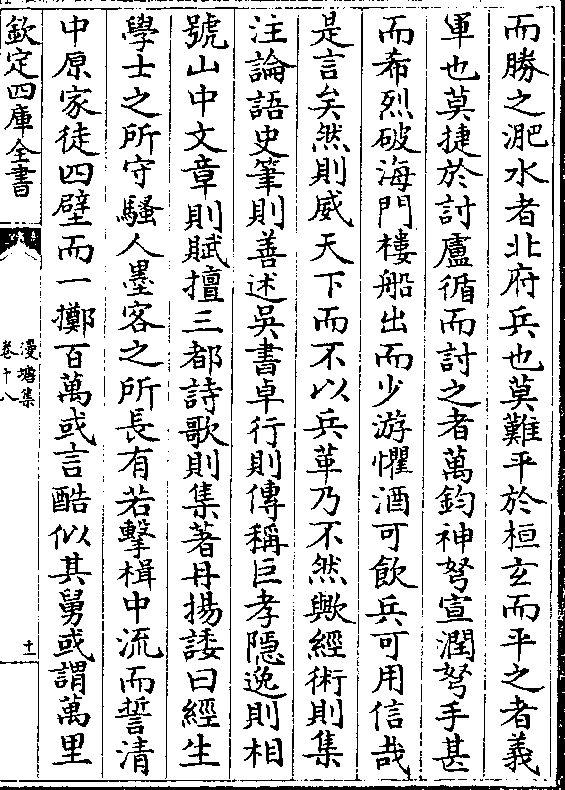 而勝之淝水者北府兵也莫難平於桓玄而平之者義
軍也莫捷於討盧循而討之者萬鈞神弩宣潤弩手甚
而希烈破海門樓船出而少游懼酒可飲兵可用信哉
是言矣然則威天下而不以兵革乃不然歟經術則集
注論語史筆則善述吳書卓行則傳稱巨孝隱逸則相
號山中文章則賦擅三都詩歌則集著丹揚諉曰經生
學士之所守騷人墨客之所長有若擊楫中流而誓清
中原家徒四壁而一擲百萬或言酷似其舅或謂萬里
欽定四庫全書
漫塘集
卷十八
十